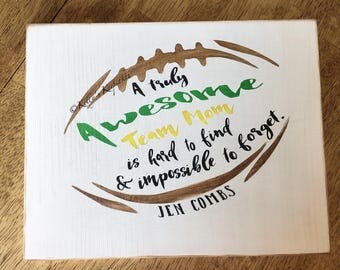 A truly
Awesome
Team Mom
is hard to find
& impossible to forget.
JEN COMBS